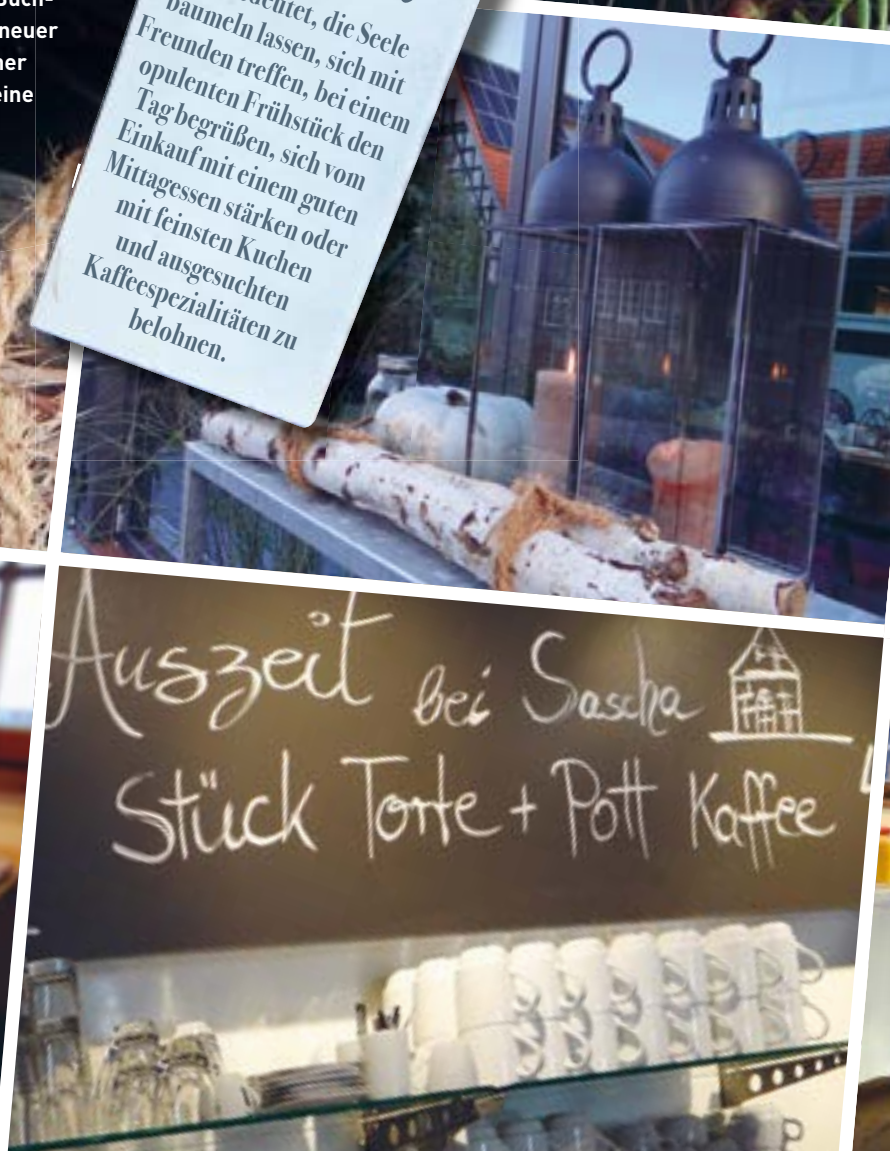 neuer
eine
die Seele
baumeln lassen, sich mit
Freunden treffen, bei einem
opulenten Frühstück den
Tag begrüßen, sich vom
Einkauf mit einem guten
Mittagessen stärken oder
mit feinsten Kuchen
und ausgesuchten
Kaffeespezialitäten zu
belohnen.
Auszeit bei Sascha
Stück Torte + Pott Kaffee